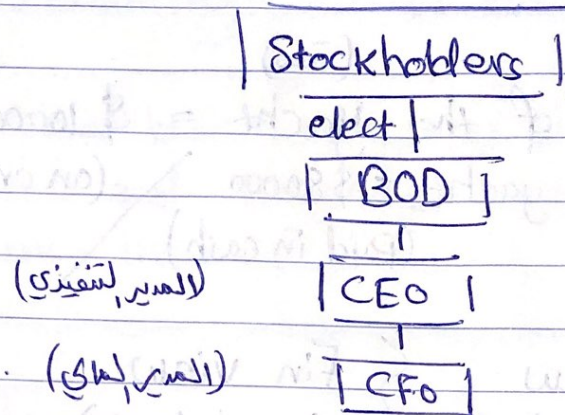 Stockholders
elect
BOD
(المدير التنفيذي) CEO
(المدير المالي) CFO